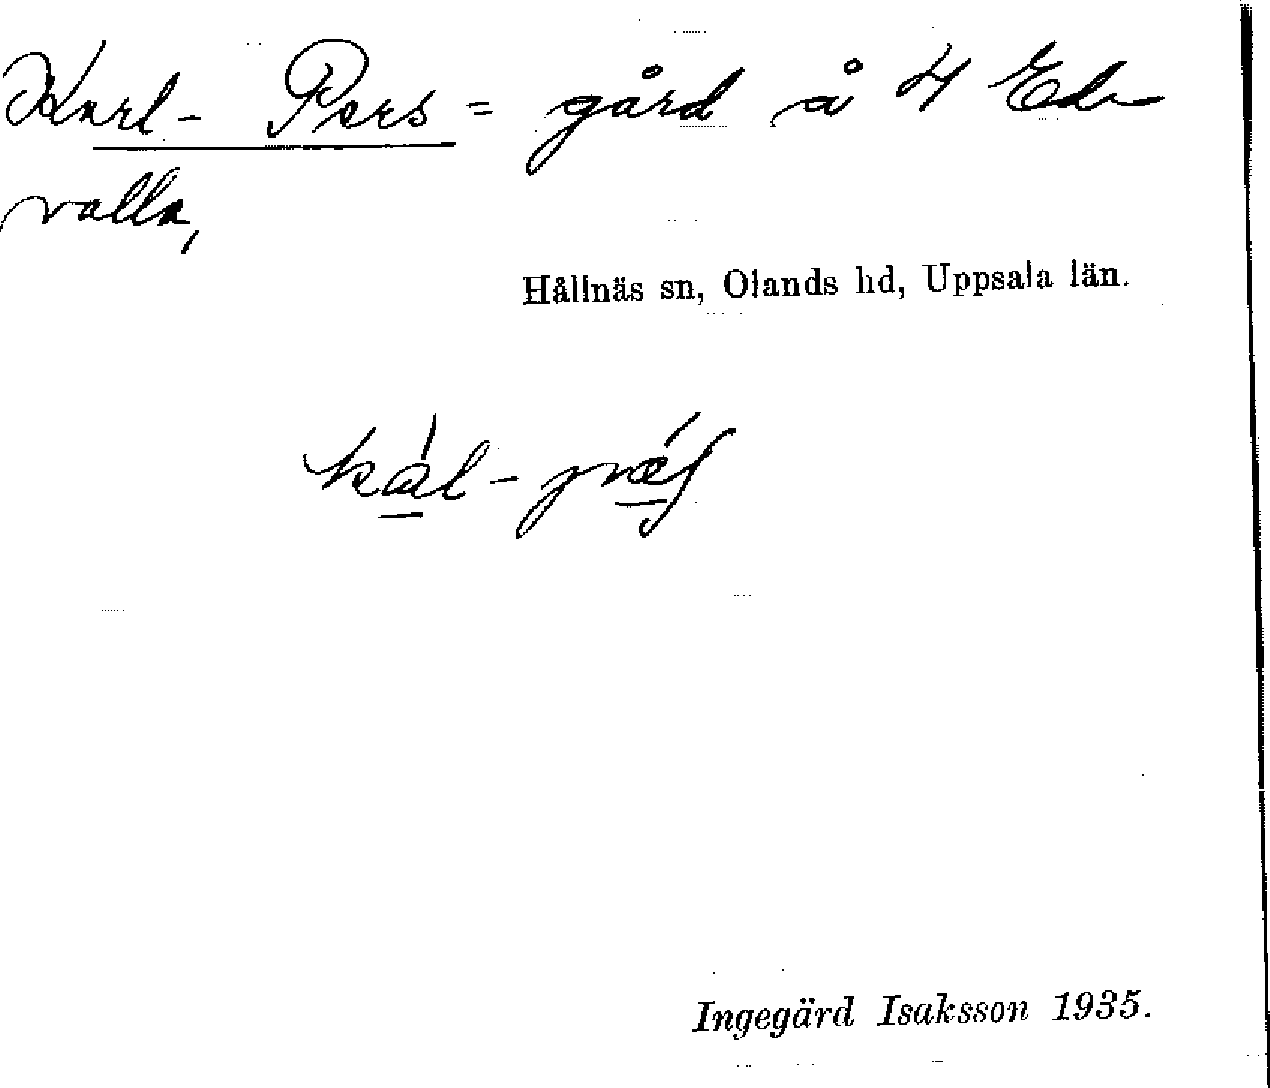 Karl- Pers = gård å 4 Ed-
valla,
Hållnäs sn, Olands hd, Uppsala län.
Ingegärd Isaksson 1935.